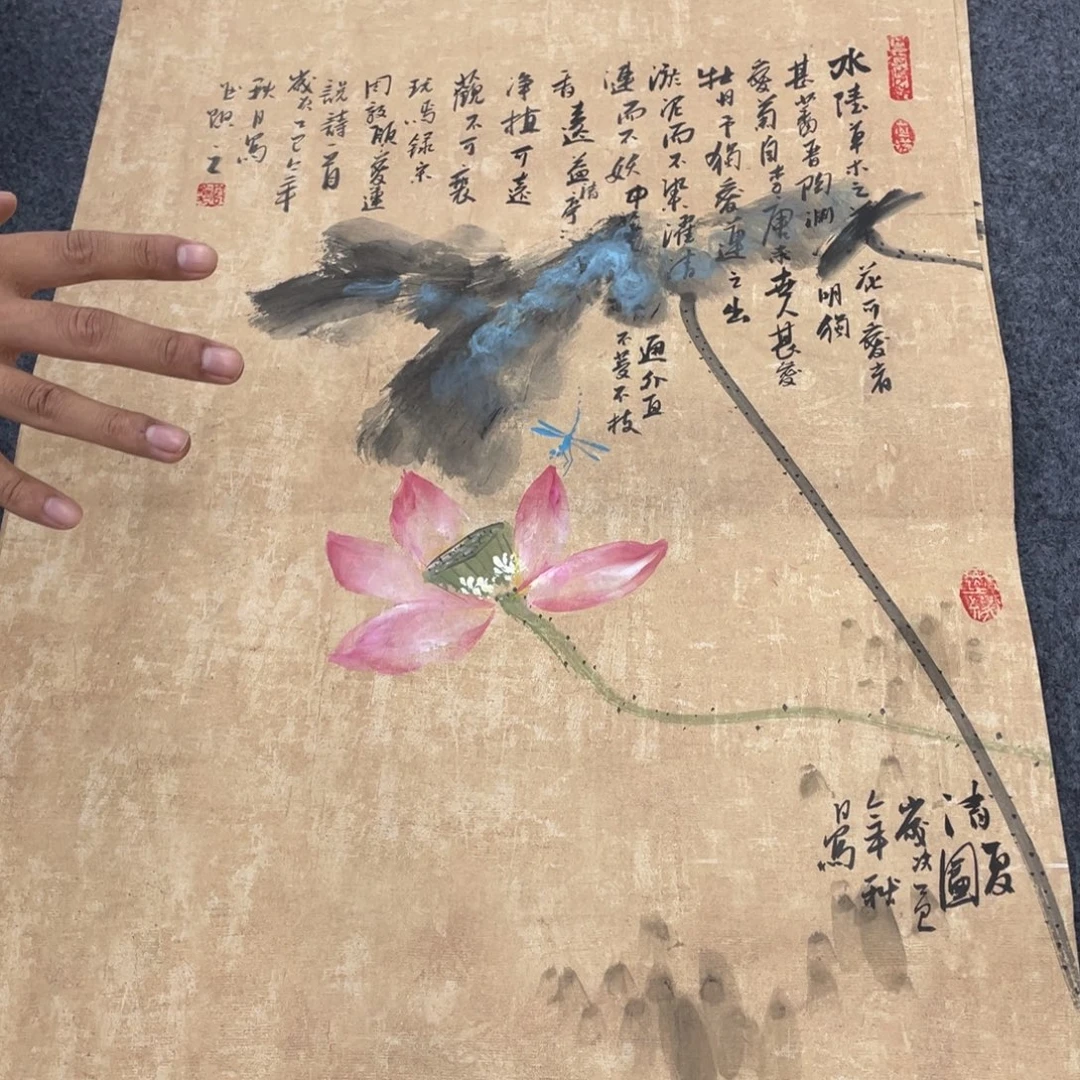 水陸草木之花可愛者
甚蕃晋陶渊明獨
愛菊自李唐来世人甚愛
牡丹予獨愛蓮之出
淤泥而不染濯清
漣而不妖中通外直
不蔓不枝
香遠益清亭
净植可遠
觀不可褻
玩焉録宋
周敦頤愛蓮
説詩一首
歲在乙巳年
秋日寫
題之
清夏
圖
歲次乙巳
年秋
日寫